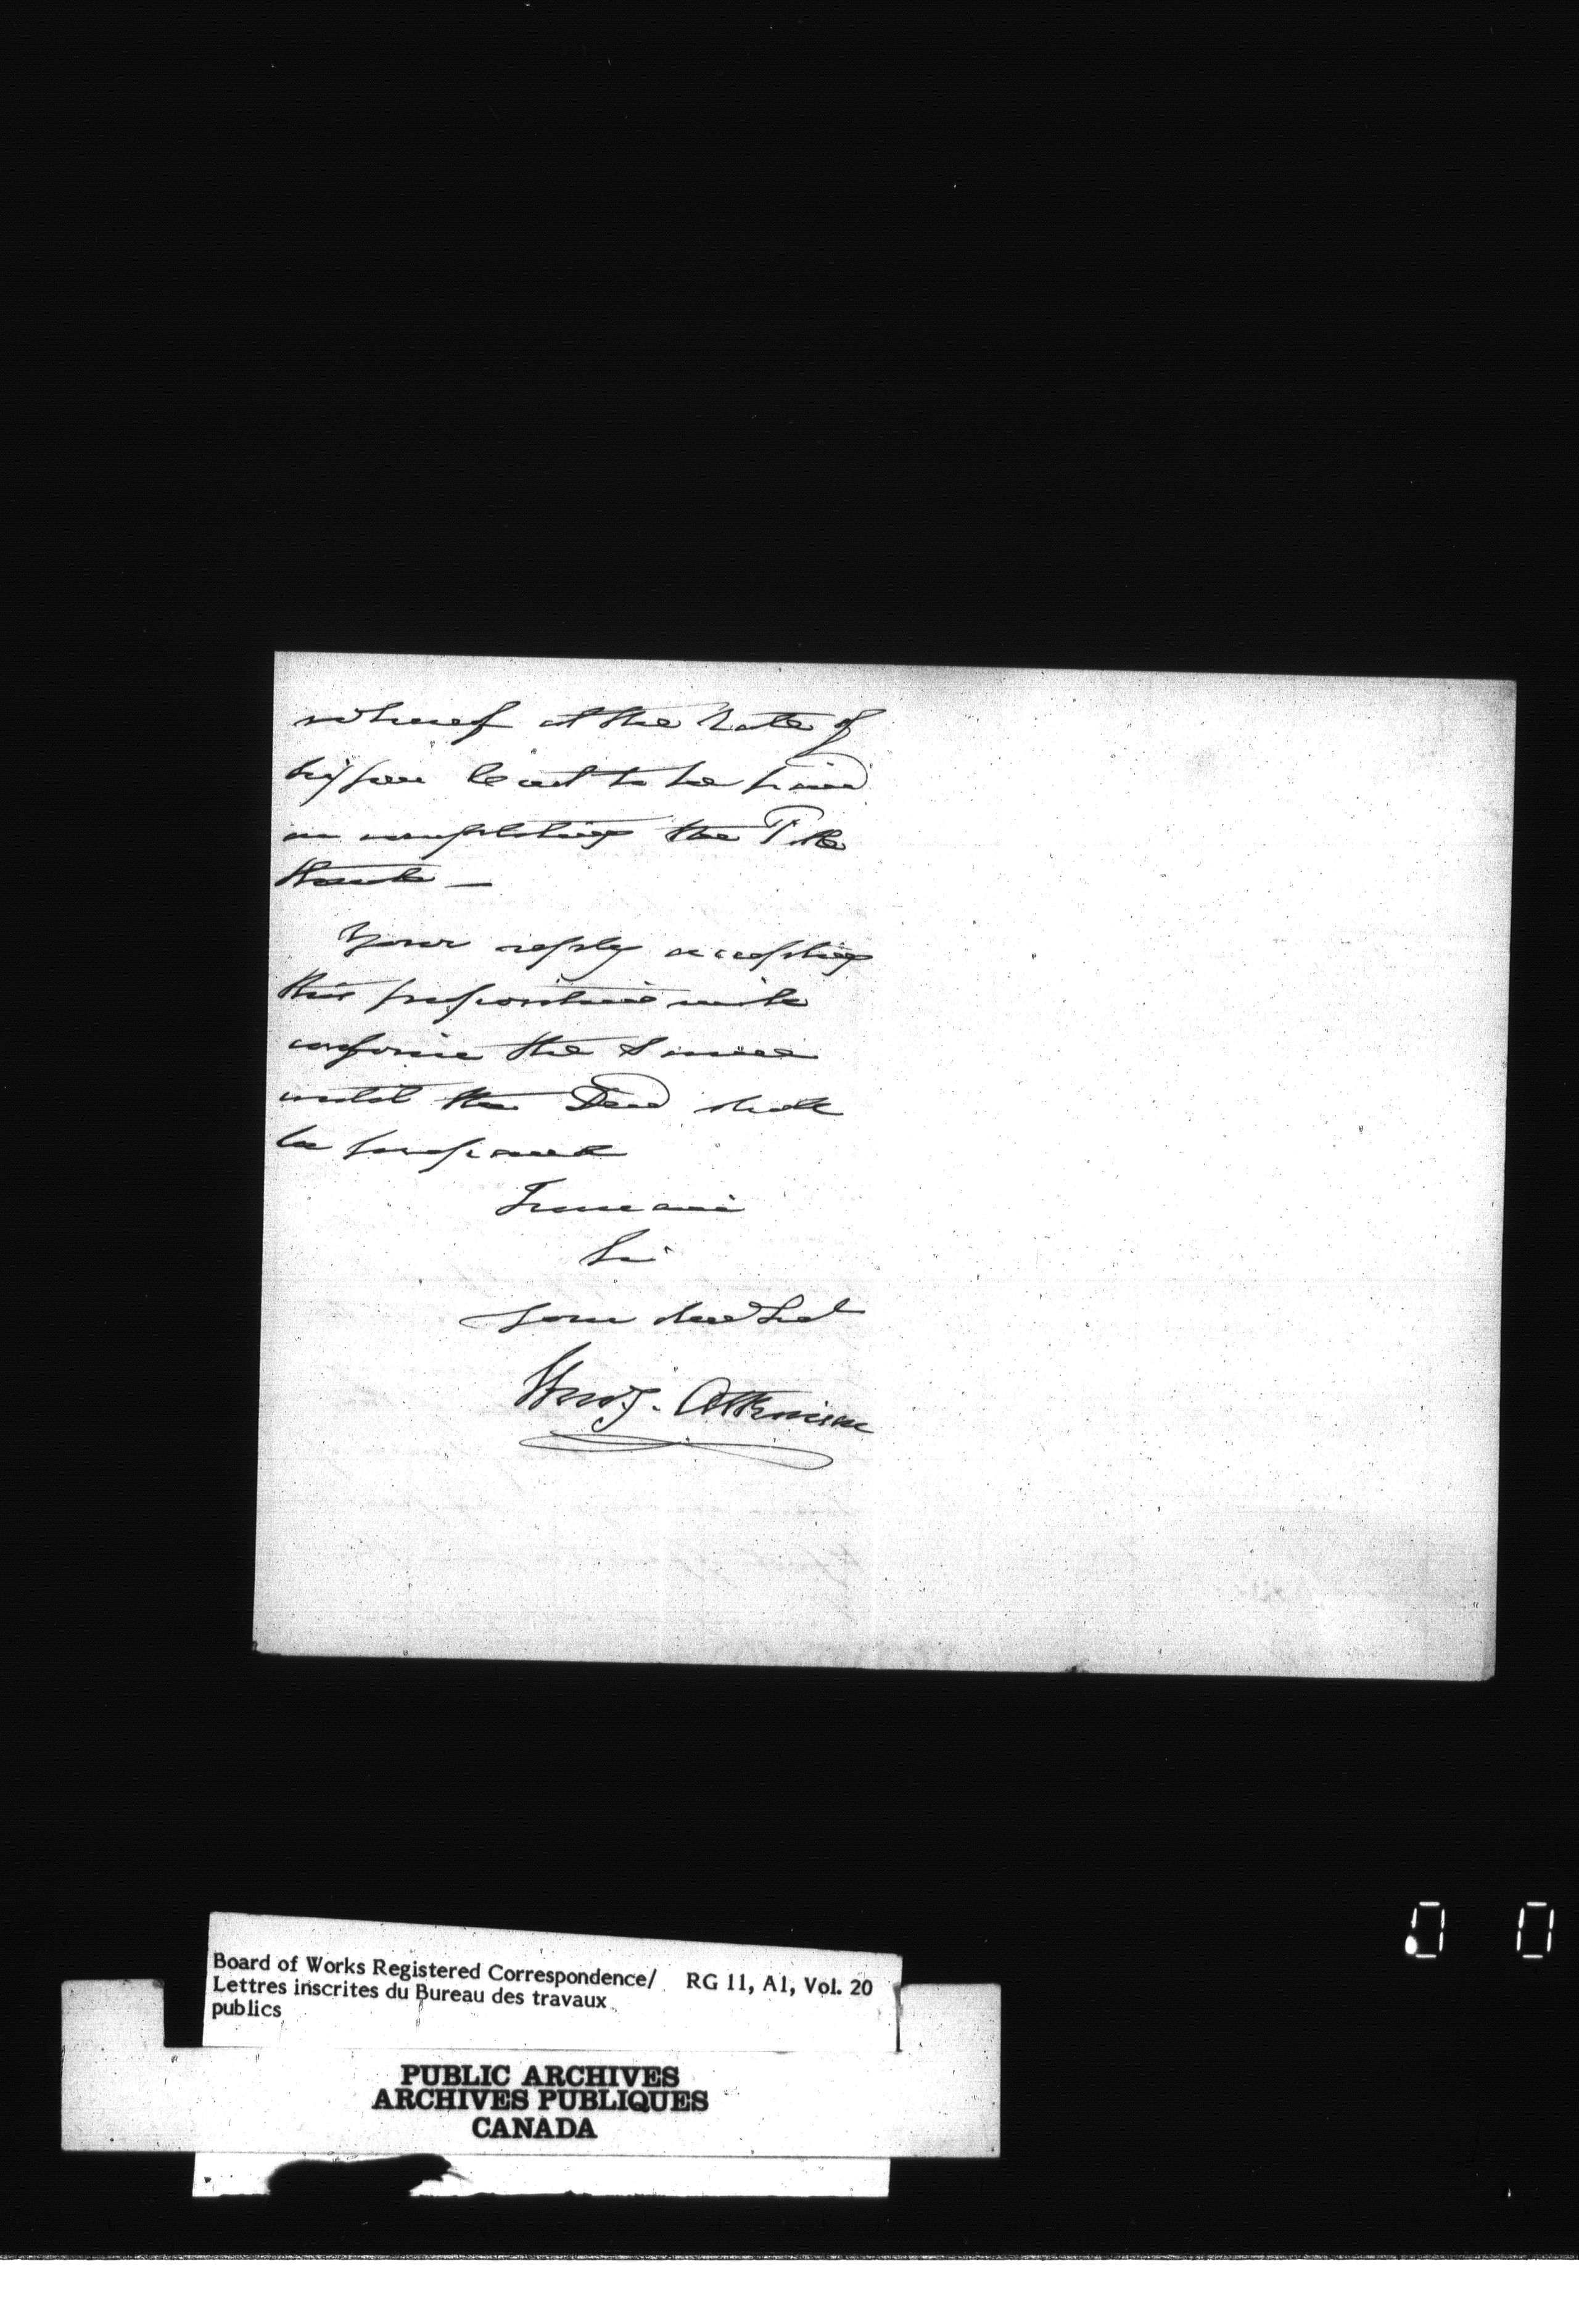 at the rate of
per Cent to be paid
on completing the Title
thereto —
Your reply accepting
this proposition will
the same
until the Deed shall
be prepared
I remain
Sir
your obed Svt
Henry Atkinson
Board of Works Registered Correspondence/ RG 11, A1, Vol. 20
Lettres inscrites du Bureau des travaux
publics
PUBLIC ARCHIVES
ARCHIVES PUBLIQUES
CANADA
0 0